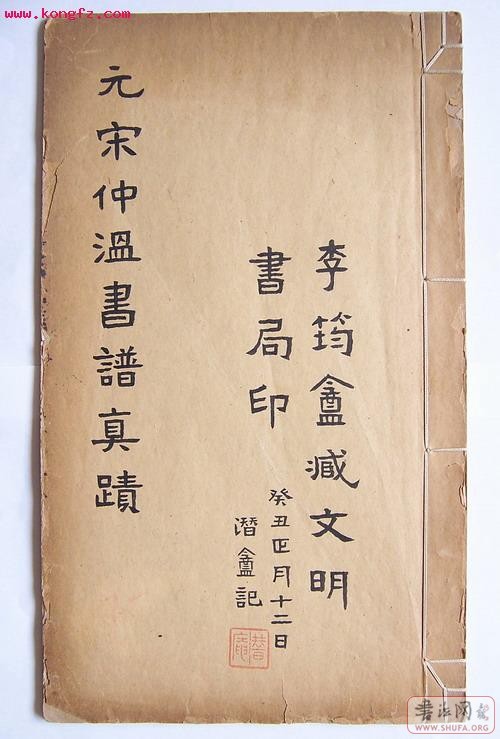 www.kongfz.com
李筠盦臧文明
書局印
癸丑正月十二日
潛盦記
元宋仲溫書譜真蹟
WWW.SHUFA.ORG